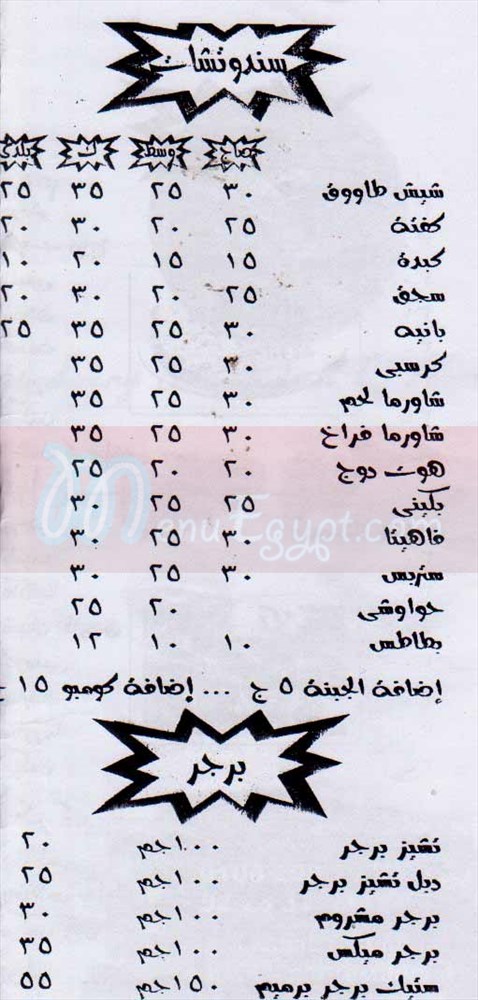 سندوتشات
صاج وسط ك بلدى
شيش طاووق ٣٠ ٢٥ ٣٥ ٢٥
كفتة ٢٥ ٢٠ ٣٠ ٢٠
كبدة ١٥ ١٥ ٢٠ ١٠
سجق ٢٥ ٢٠ ٣٠ ٢٠
بانيه ٣٠ ٢٥ ٣٥ ٢٥
كرسبى ٣٠ ٢٥ ٣٥
شاورما لحم ٣٠ ٢٥ ٣٥
شاورما فراخ ٣٠ ٢٥ ٣٥
هوت دوج ٢٠ ٢٠ ٢٥
بكينى ٢٥ ٢٥ ٣٠
فاهيتا ٣٠ ٢٥ ٣٠
ستربس ٣٠ ٢٥ ٣٠
حواوشى ٢٠ ٢٥
بطاطس ١٠ ١٠ ١٢
إضافة الجبنة ٥ ج ... إضافة كومبو ١٥ ج
MenuEgypt.com
برجر
تشيز برجر ١٠٠جم ٢٠
دبل تشيز برجر ١٠٠جم ٢٥
برجر مشروم ١٠٠جم ٣٠
برجر ميكس ١٠٠جم ٣٥
ستيك برجر بريميم ١٥٠جم ٥٥